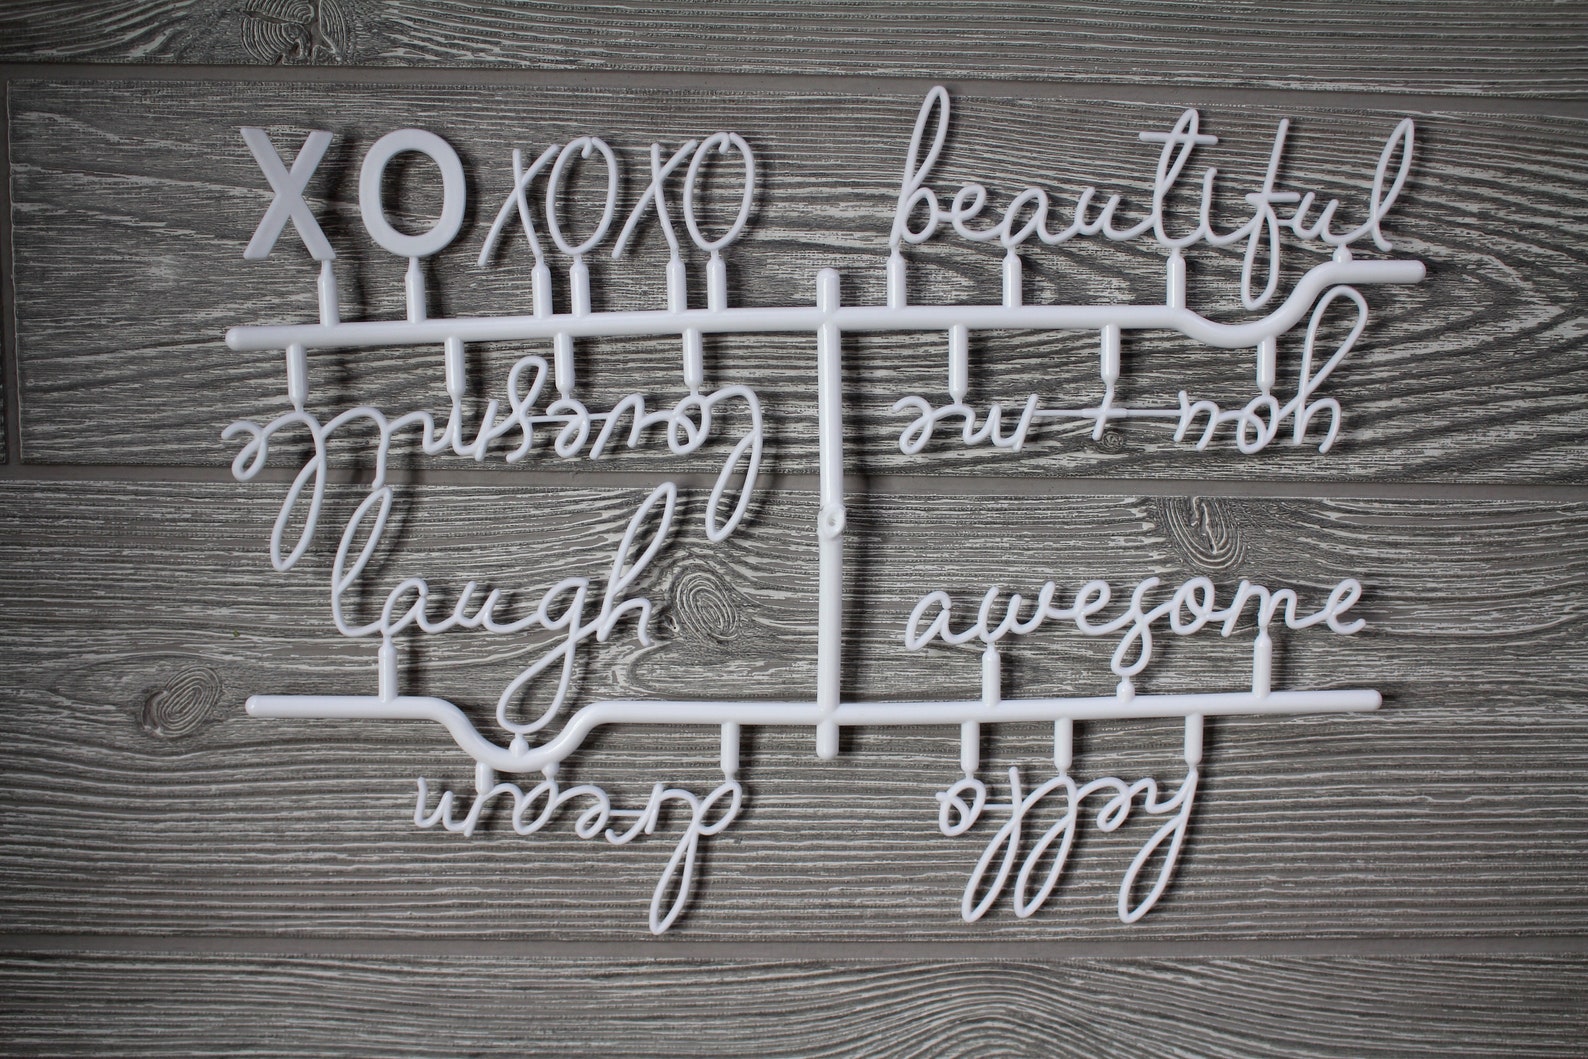 XO xoxo beautiful
love smile
you + me
laugh
awesome
dream
hello